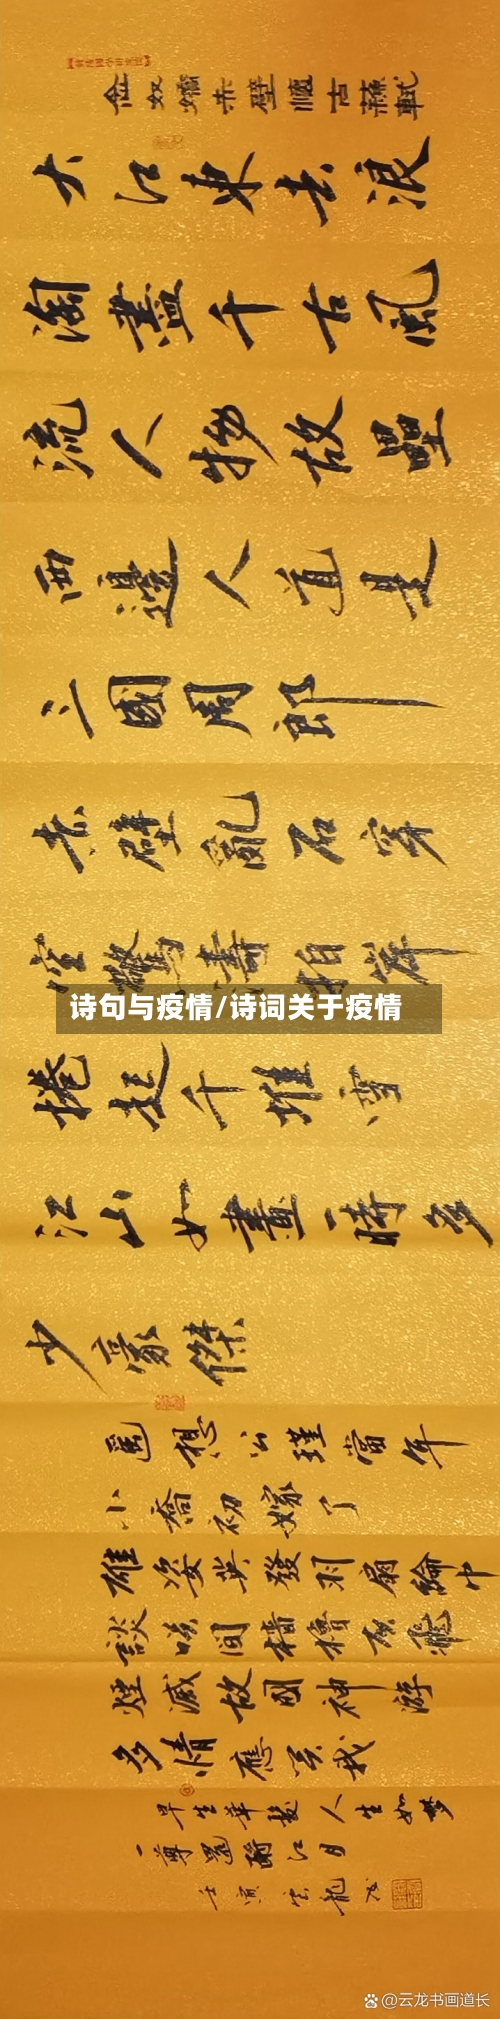 念奴嬌赤壁懷古蘇軾
大江東去浪
淘盡千古風
流人物故壘
西邊人道是
三國周郎
赤壁亂石穿
空驚濤拍岸
诗句与疫情/诗词关于疫情
捲起千堆雪
江山如畫一時多
少豪傑
遙想公瑾當年
小喬初嫁了
雄姿英發羽扇綸巾
談笑間檣櫓灰飛
煙滅故國神游
多情應笑我
早生華髮人生如夢
一尊還酹江月
壬寅雲龍
@云龙书画道长